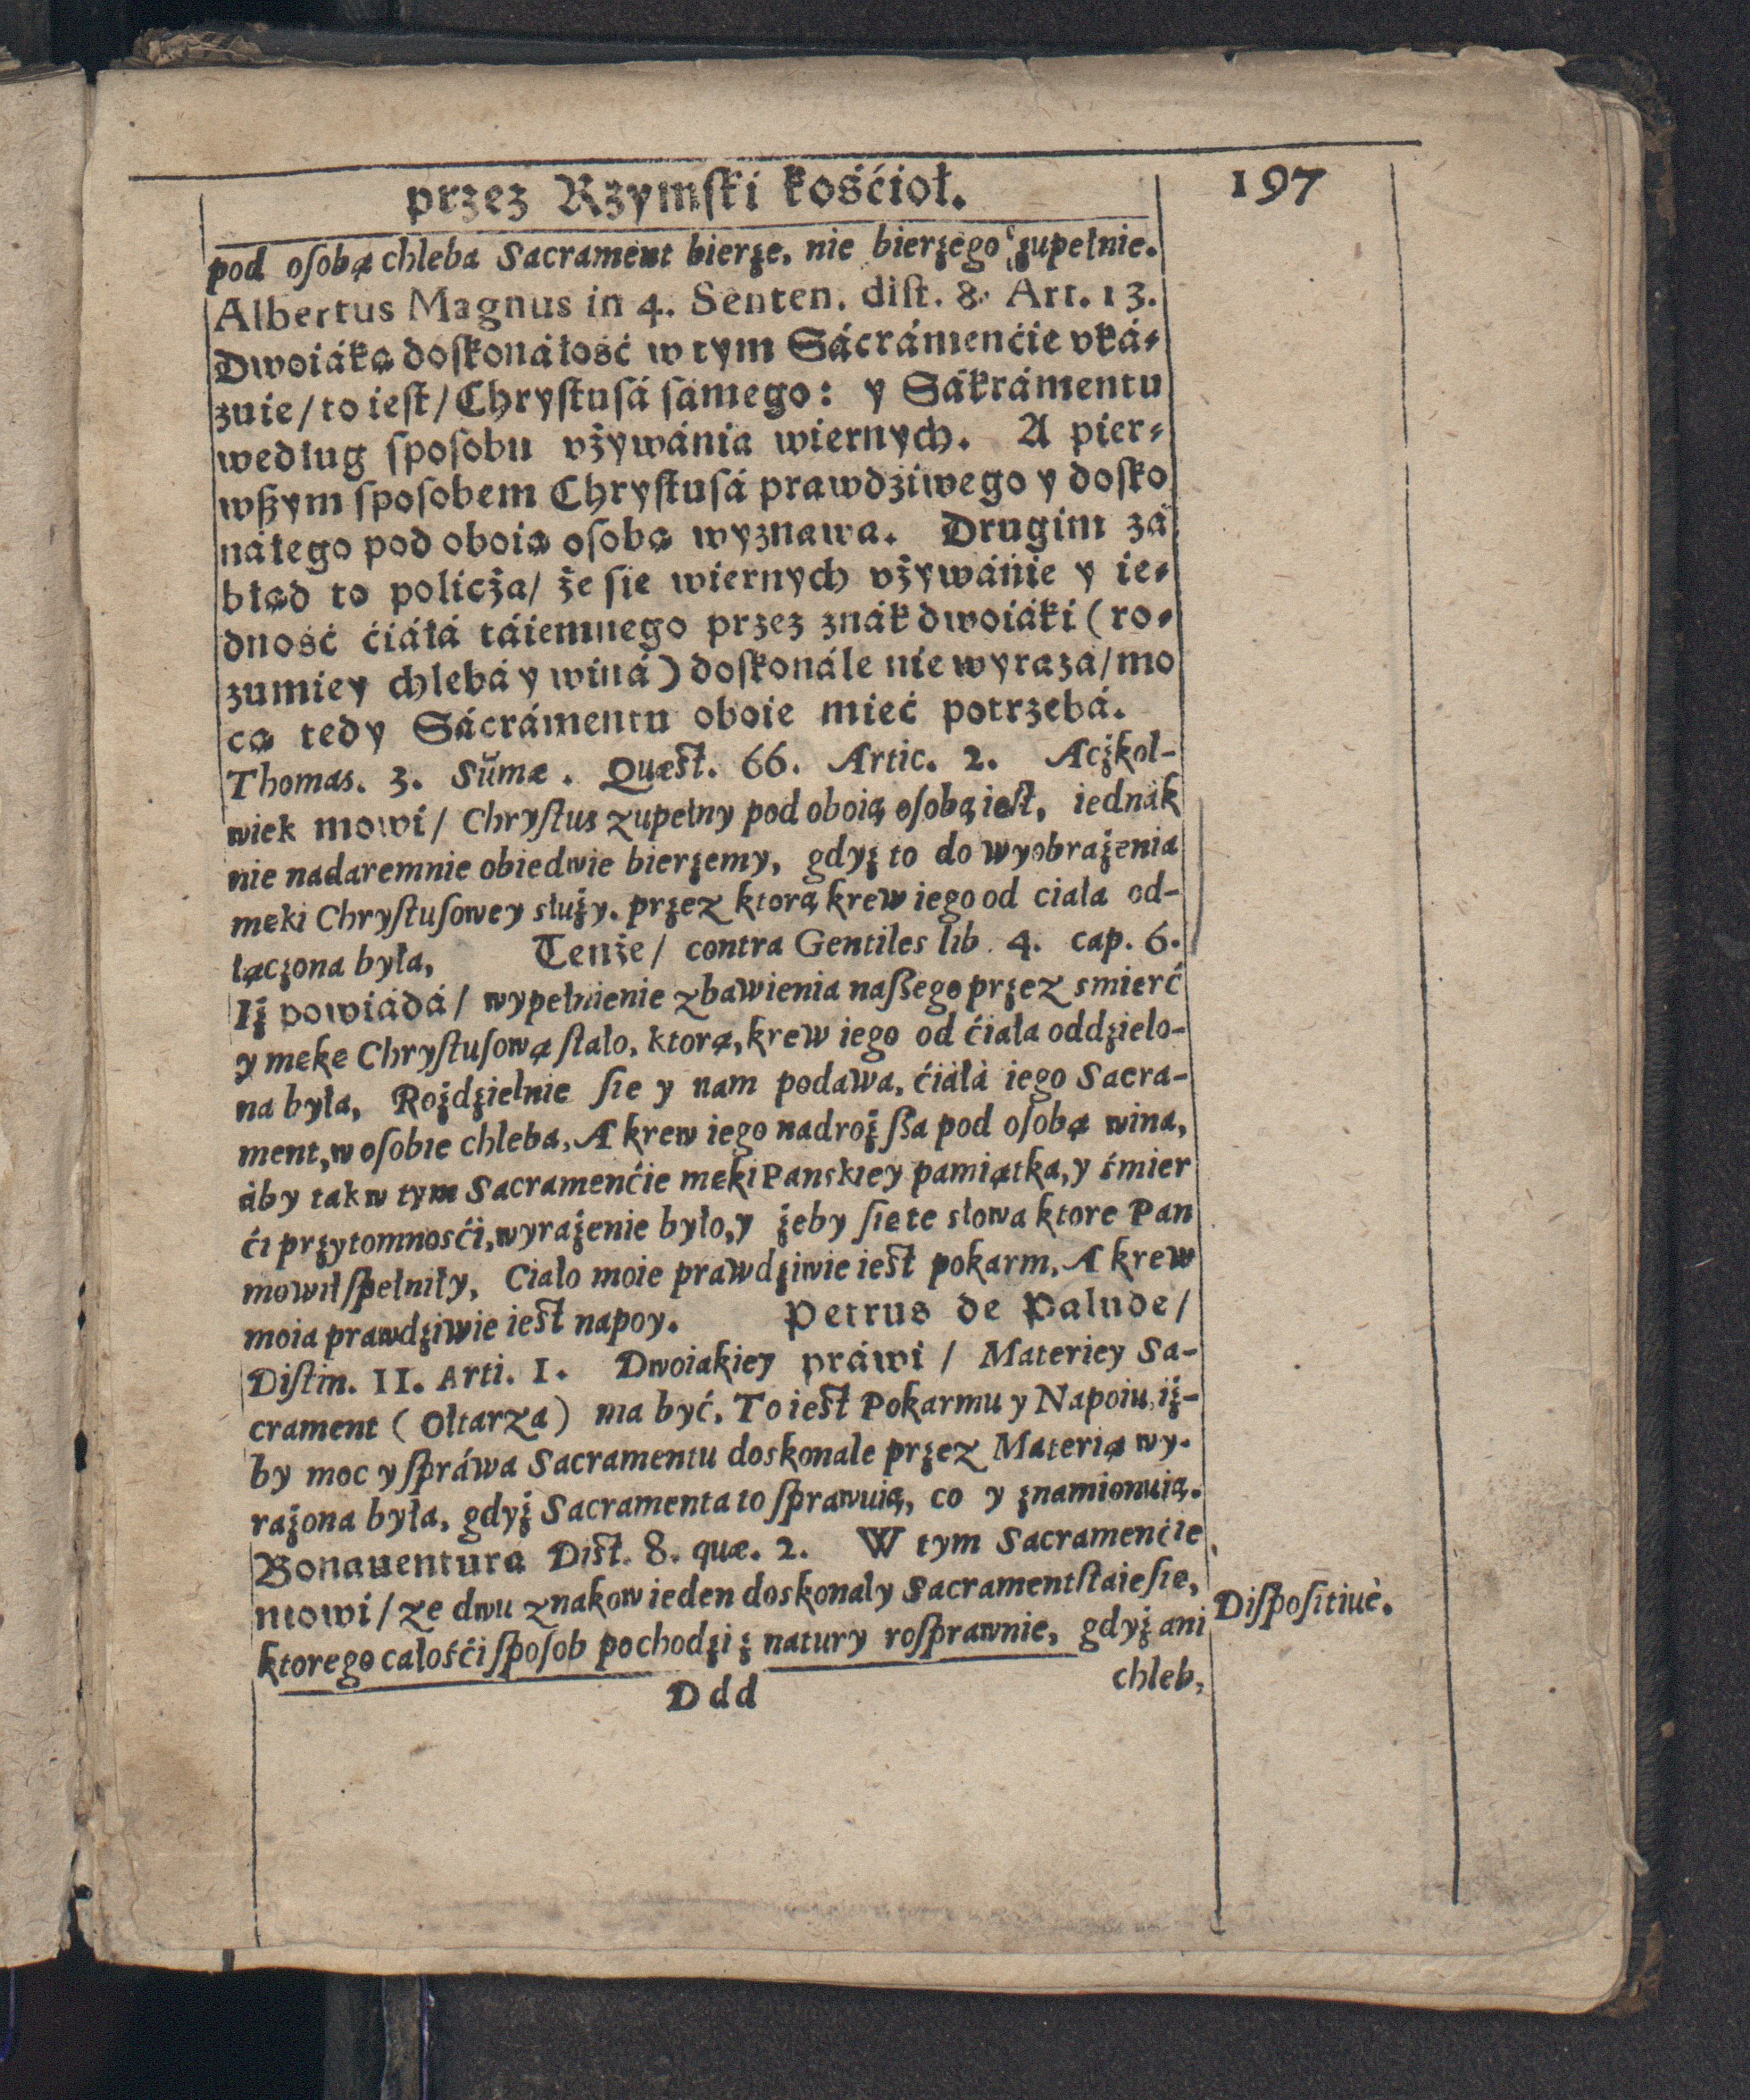 przez Rzymſki kośćioł.
197
pod oſobą chleba Sacrament bierze, nie bierzego zupełnie.
Albertus Magnus in 4. Senten. diſt. 8. Art. 13.
Dwoiáką doſkonáłość w tym Sácrámenćie vká-
zuie / to ieſt / Chryſtuſá ſámego: y Sákrámentu
według ſpoſobu vżywánia wiernych. A pier-
wßym ſpoſobem Chryſtuſá prawdźiwego y doſko
náłego pod oboią oſobą wyznawa. Drugim zá
błąd to policża / że ſie wiernych vżywánie y ie-
dność ćiáłá táiemnego przez znák dwoiáki (ro-
zumiey chlebá y winá) doſkonále nie wyraza / mo
cą tedy Sácrámentu oboie mieć potrzebá.
Thomas. 3. Sūmæ. Quæſt. 66. Artic. 2. Aczkol-
wiek mowi / Chryſtus zupełny pod oboią oſobą ieſt, iednák
nie nadaremnie obiedwie bierzemy, gdyż to do wyobrażenia
meki Chryſtuſowey służy. przez ktorą krew iego od ciała od-
łączona była, Tenże / contra Gentiles lib. 4. cap. 6.
Iż powiádá / wypełnienie zbawienia naßego przez smierć
y meke Chryſtuſową ſtało, ktorą, krew iego od ćiała oddzielo-
na była, Rożdzielnie ſie y nam podawa, ćiáłá iego Sacra-
ment, w oſobie chleba, A krew iego nadroż ßa pod oſobą wina,
áby tak w tym Sacramenćie meki Panskiey pamiątka, y śmier
ći przytomnosći, wyrażenie było, y żeby ſie te słowa ktore Pan
mowił ſpełniły, Ciało moie prawdziwie ieſt pokarm, A krew
moia prawdziwie ieſt napoy. Petrus de Palude /
Diſtin. 11. Arti. 1. Dwoiakiey práwi / Materiey Sa-
crament (Ołtarza) ma być, To ieſt Pokarmu y Napoiu, iż-
by moc y ſpráwa Sacramentu doskonale przez Materią wy-
rażona była, gdyż Sacramenta to ſprawuią, co y znamionuią.
Bonauentura Diſt. 8. quæ. 2. W tym Sacramenćie
mowi / ze dwu znakow ieden doskonaly Sacrament ſtaie ſie,
ktorego całośći ſpoſob pochodzi z natury roſprawnie, gdyż ani
Diſpoſitiuè.
Ddd
chleb,